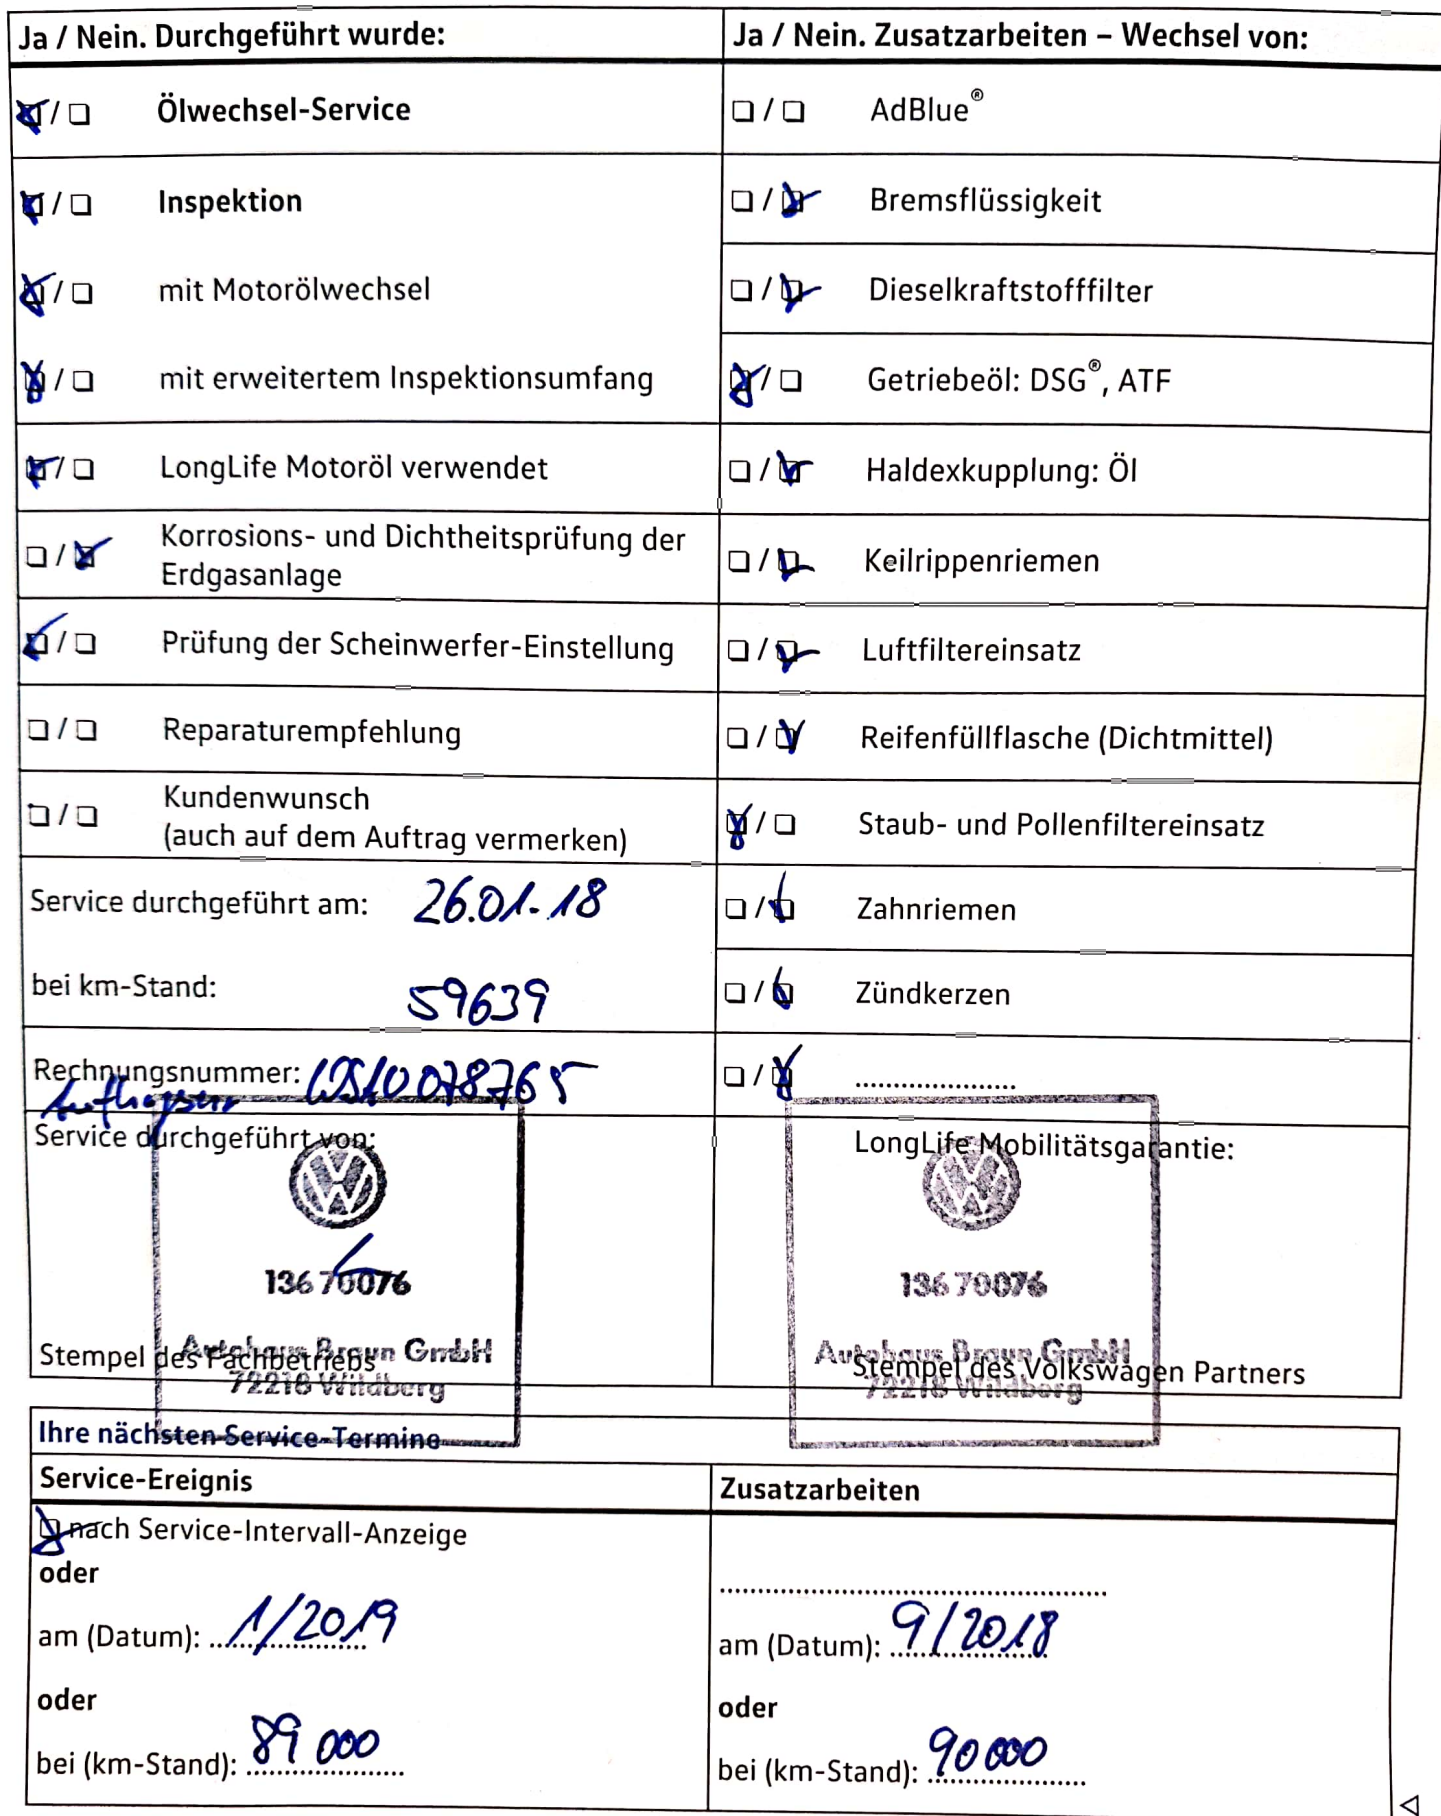 Ja / Nein. Durchgeführt wurde:
Ölwechsel-Service
Inspektion
mit Motorölwechsel
mit erweitertem Inspektionsumfang
LongLife Motoröl verwendet
Korrosions- und Dichtheitsprüfung der
Erdgasanlage
Prüfung der Scheinwerfer-Einstellung
Reparaturempfehlung
Kundenwunsch
(auch auf dem Auftrag vermerken)
Service durchgeführt am: 26.01.18
bei km-Stand: 59639
Rechnungsnummer:
Service durchgeführt von:
136 70076
Autohaus Braun GmbH
72218 Wildberg
Stempel des Fachbetriebs
Ja / Nein. Zusatzarbeiten – Wechsel von:
AdBlue®
Bremsflüssigkeit
Dieselkraftstofffilter
Getriebeöl: DSG®, ATF
Haldexkupplung: Öl
Keilrippenriemen
Luftfiltereinsatz
Reifenfüllflasche (Dichtmittel)
Staub- und Pollenfiltereinsatz
Zahnriemen
Zündkerzen
LongLife Mobilitätsgarantie:
136 70076
Autohaus Braun GmbH
72218 Wildberg
Stempel des Volkswagen Partners
Ihre nächsten Service-Termine
Service-Ereignis
nach Service-Intervall-Anzeige
oder
am (Datum): 1/2019
oder
bei (km-Stand): 89 000
Zusatzarbeiten
am (Datum): 9/2018
oder
bei (km-Stand): 90 000